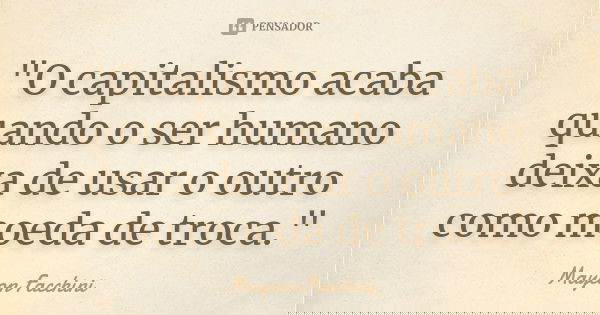 PENSADOR
"O capitalismo acaba
quando o ser humano
deixa de usar o outro
como moeda de troca."
Maycon Facchini